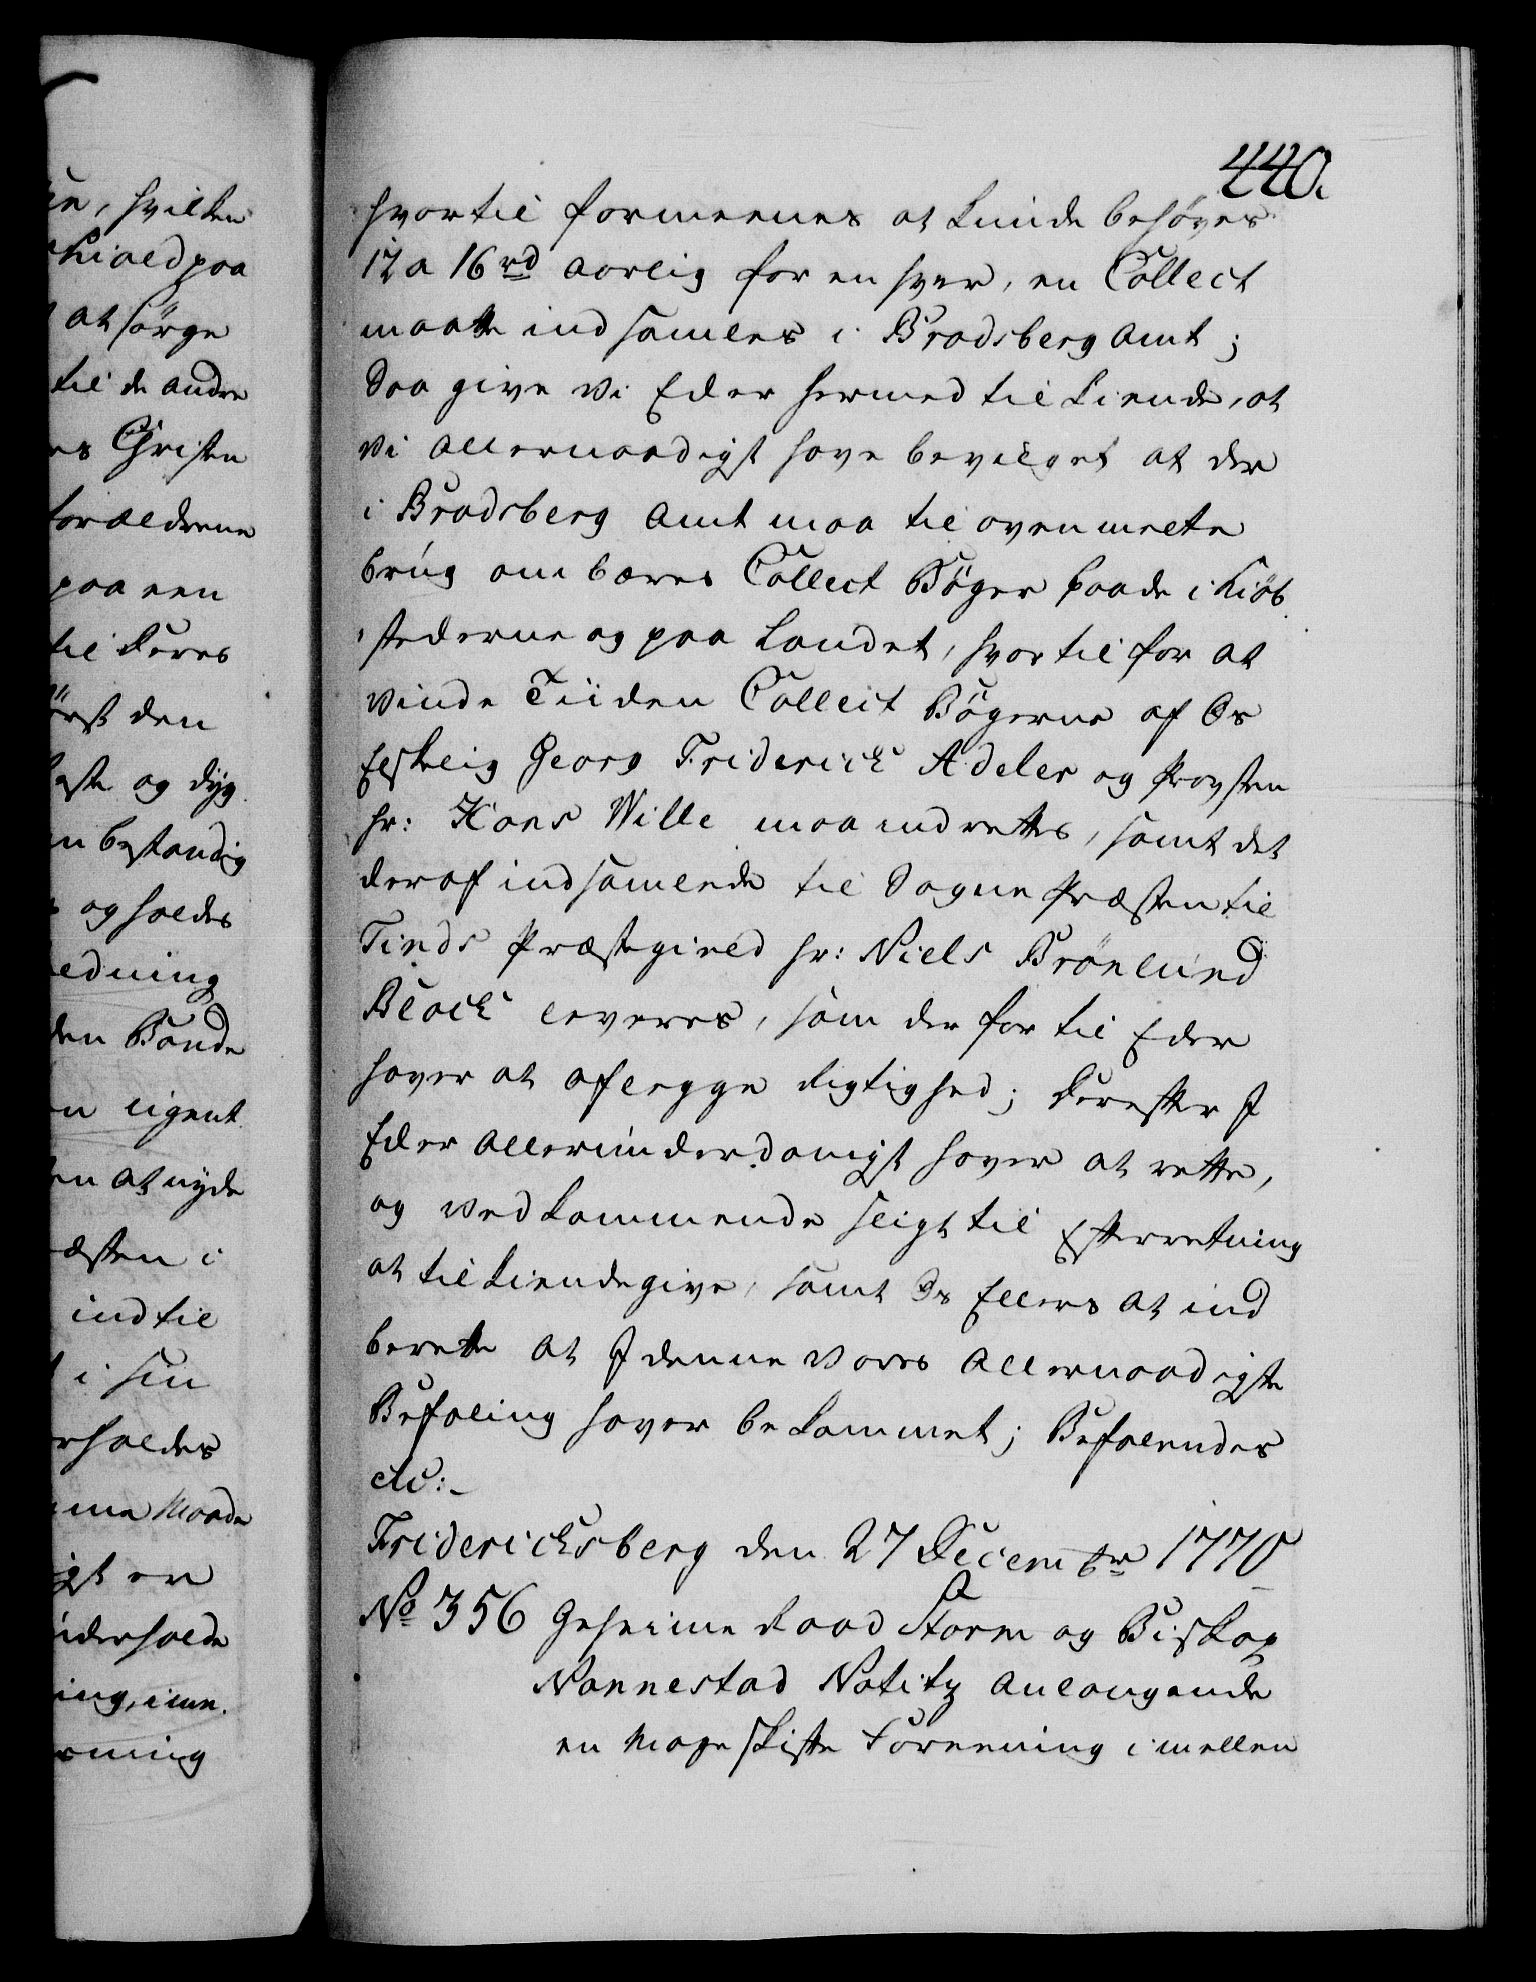 440.
hvortil formeenes at kunde behøves
12 a 16 rd aarlig for en hver, en Collect
maatte indsamles i Bradsberg Amt;
Saa give Vi Eder hermed tilkiende, at
Vi Allernaadigst have bevilget at der
i Bradsberg Amt maa til ovenmeelte
brug ombæres Collect Bøger baade i Kiøb
stederne og paa Landet, hvortil for at
vinde Tiiden Collect Bøgerne af Os
Elskelig Georg Friderich Adeler og Provsten
Hr: Hans Wille maa indrettes, samt det
deraf indsamlende til Sogne Præsten til
Tinds Præstegield Hr: Niels Brönlund
Bloch leveres, som derfor til Eder
haver at aflegge Rigtighed; Derefter I
Eder Allerunderdanigst haver at rette,
og vedkommende sligt til Efterretning
at tilkiendegive, samt Os Ellers at ind
berette at I denne Vores Allernaadigste
Befaling haver bekommet; Befalendes
etc:
Fridericksberg den 27 Decembr 1770
No 356 Geheime Raad Storm og Biskop
Nannestad Notitz anlangende
en Mageskifte Foreening imellem
un, hvilken
skiold paa
at sørge
til de andre
es Christen
forældrene
paa een
til deres
ørst den
este og dyg
en bestandig
og holdes
ledning
den Bonde
en ligent
en at nyde
æsten i
indtil
i sin
rholdes
me Maade
igt er
underholde
ing, imn.